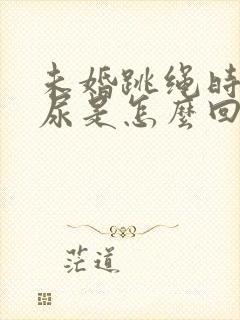 未婚跳绳时
尿是怎麼回
茫道